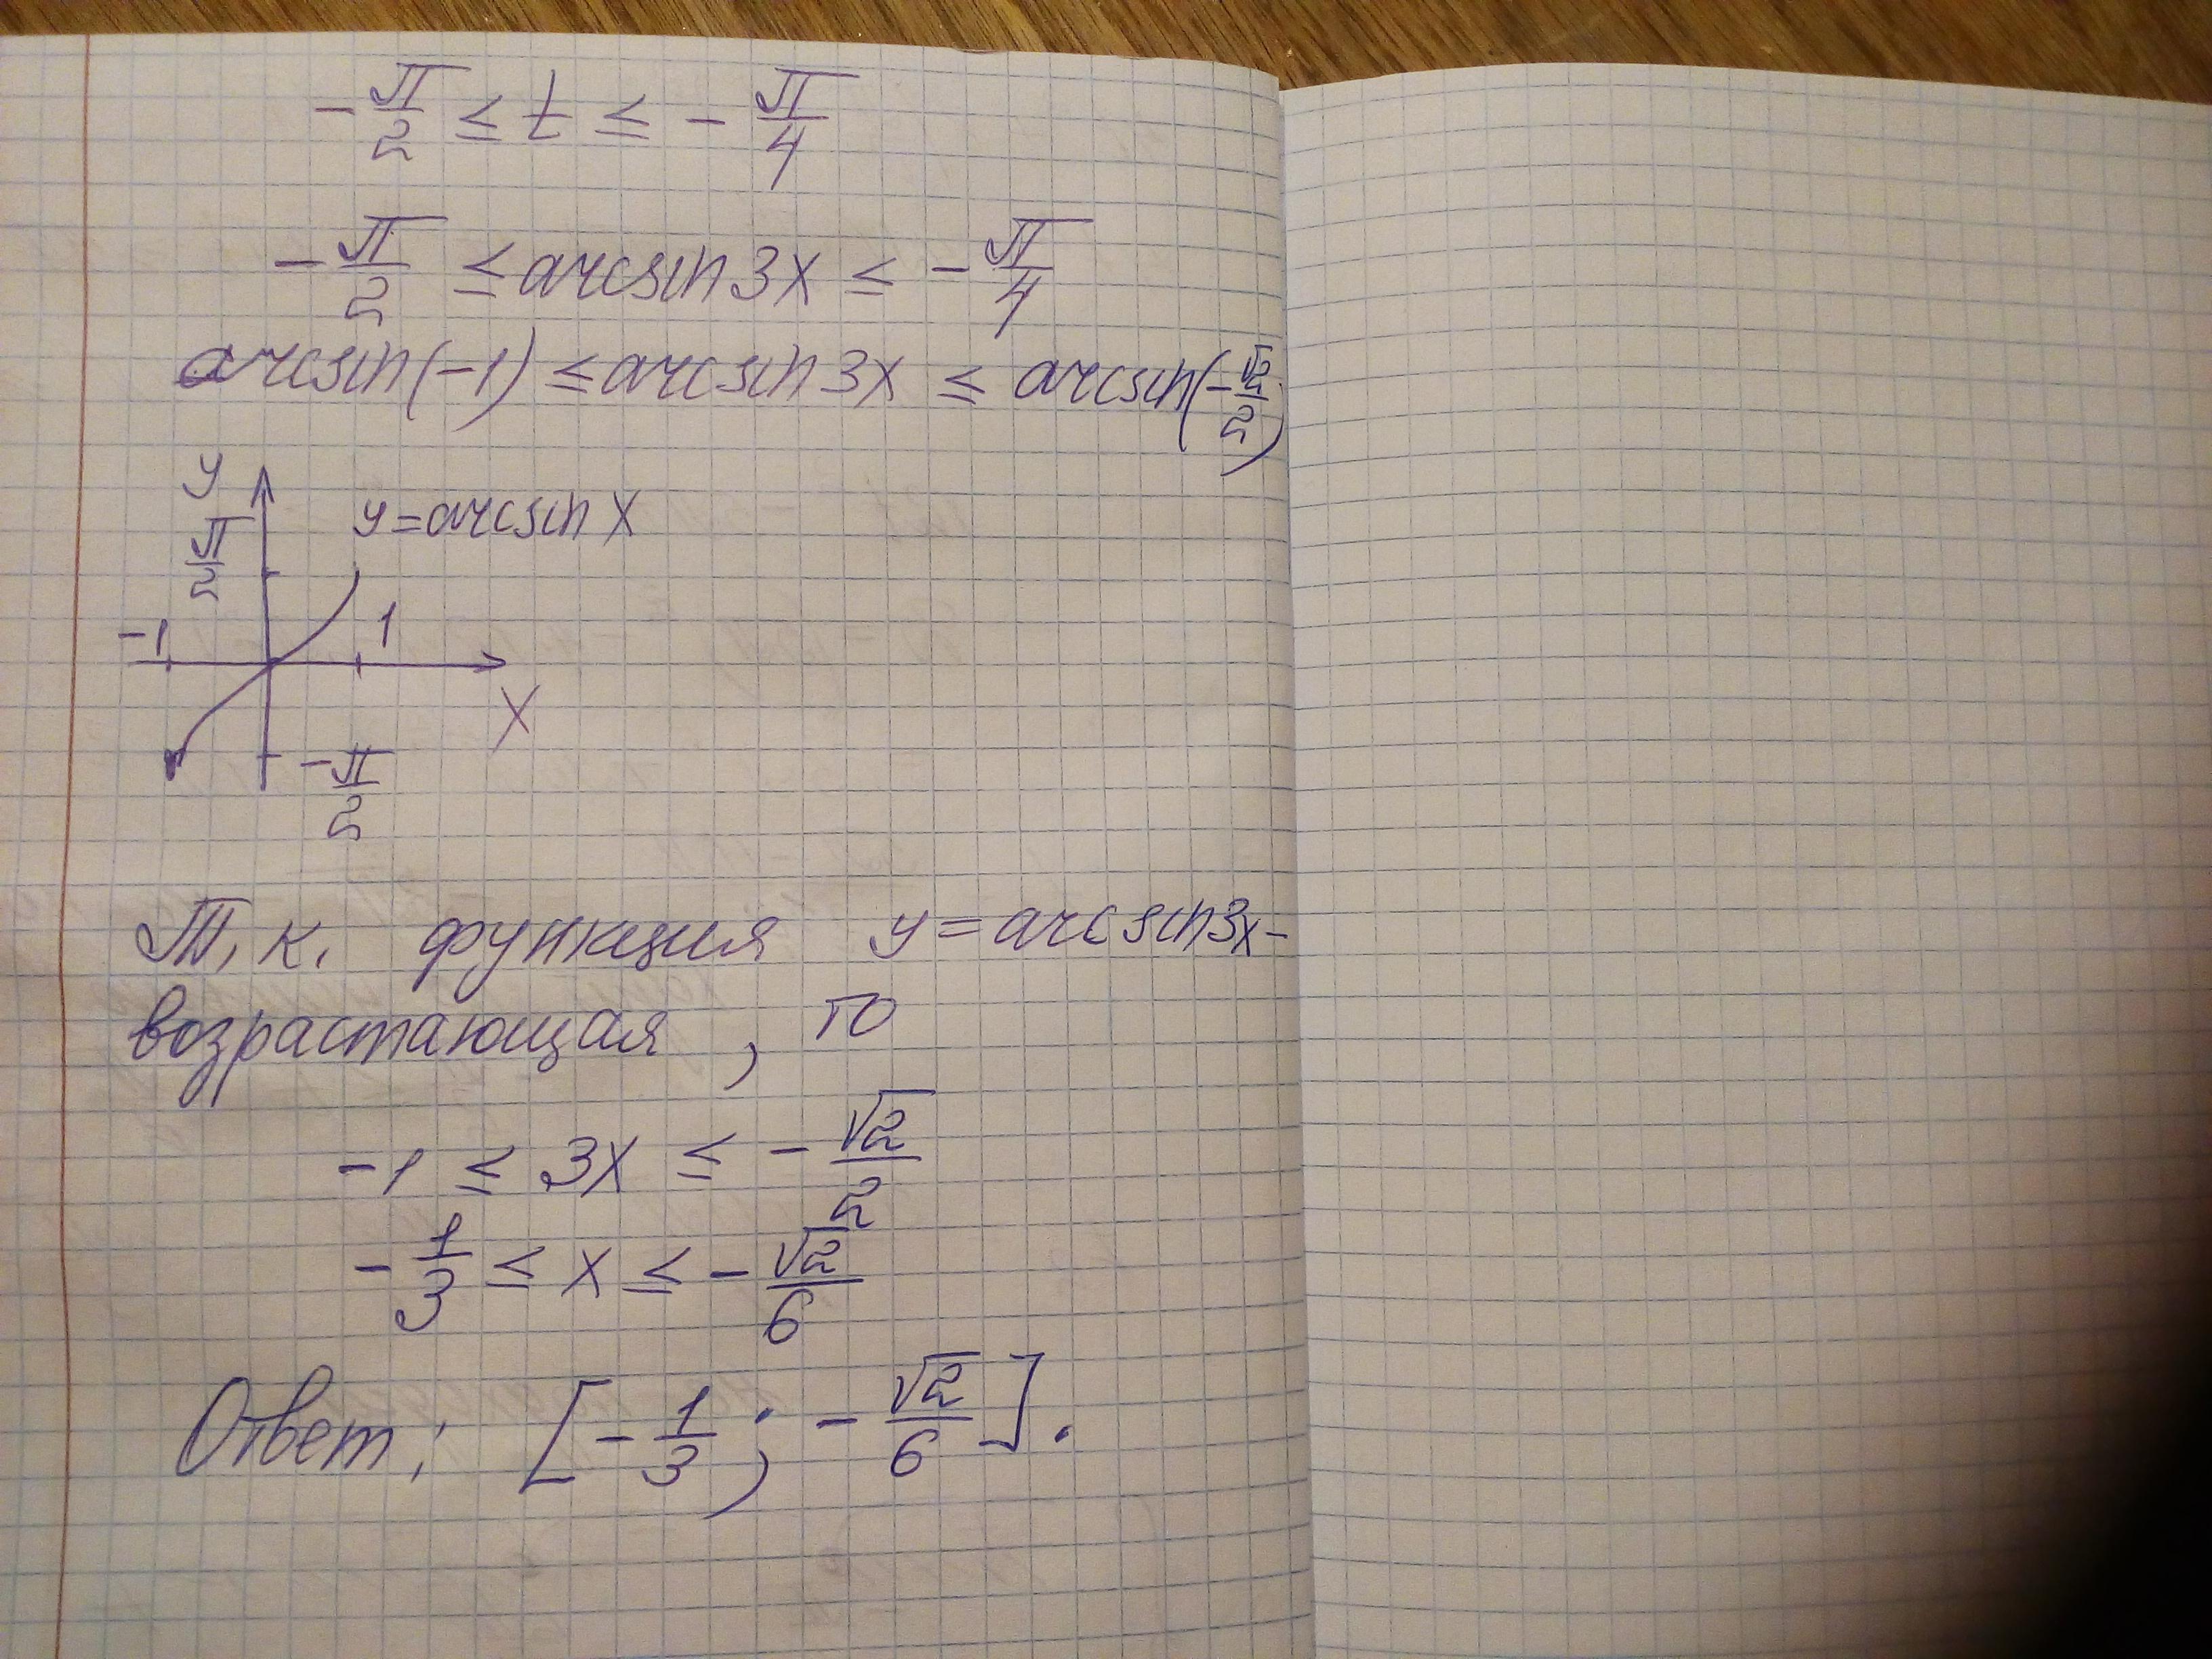 -π/2 ≤ t ≤ -π/4
-π/2 ≤ arcsin 3x ≤ -π/4
arcsin(-1) ≤ arcsin 3x ≤ arcsin(-√2/2)
y
y = arcsin x
π/2
-1
1
x
-π/2
Т. к. функция y = arcsin 3x -
возрастающая, то
-1 ≤ 3x ≤ -√2/2
-1/3 ≤ x ≤ -√2/6
Ответ: [-1/3; -√2/6].